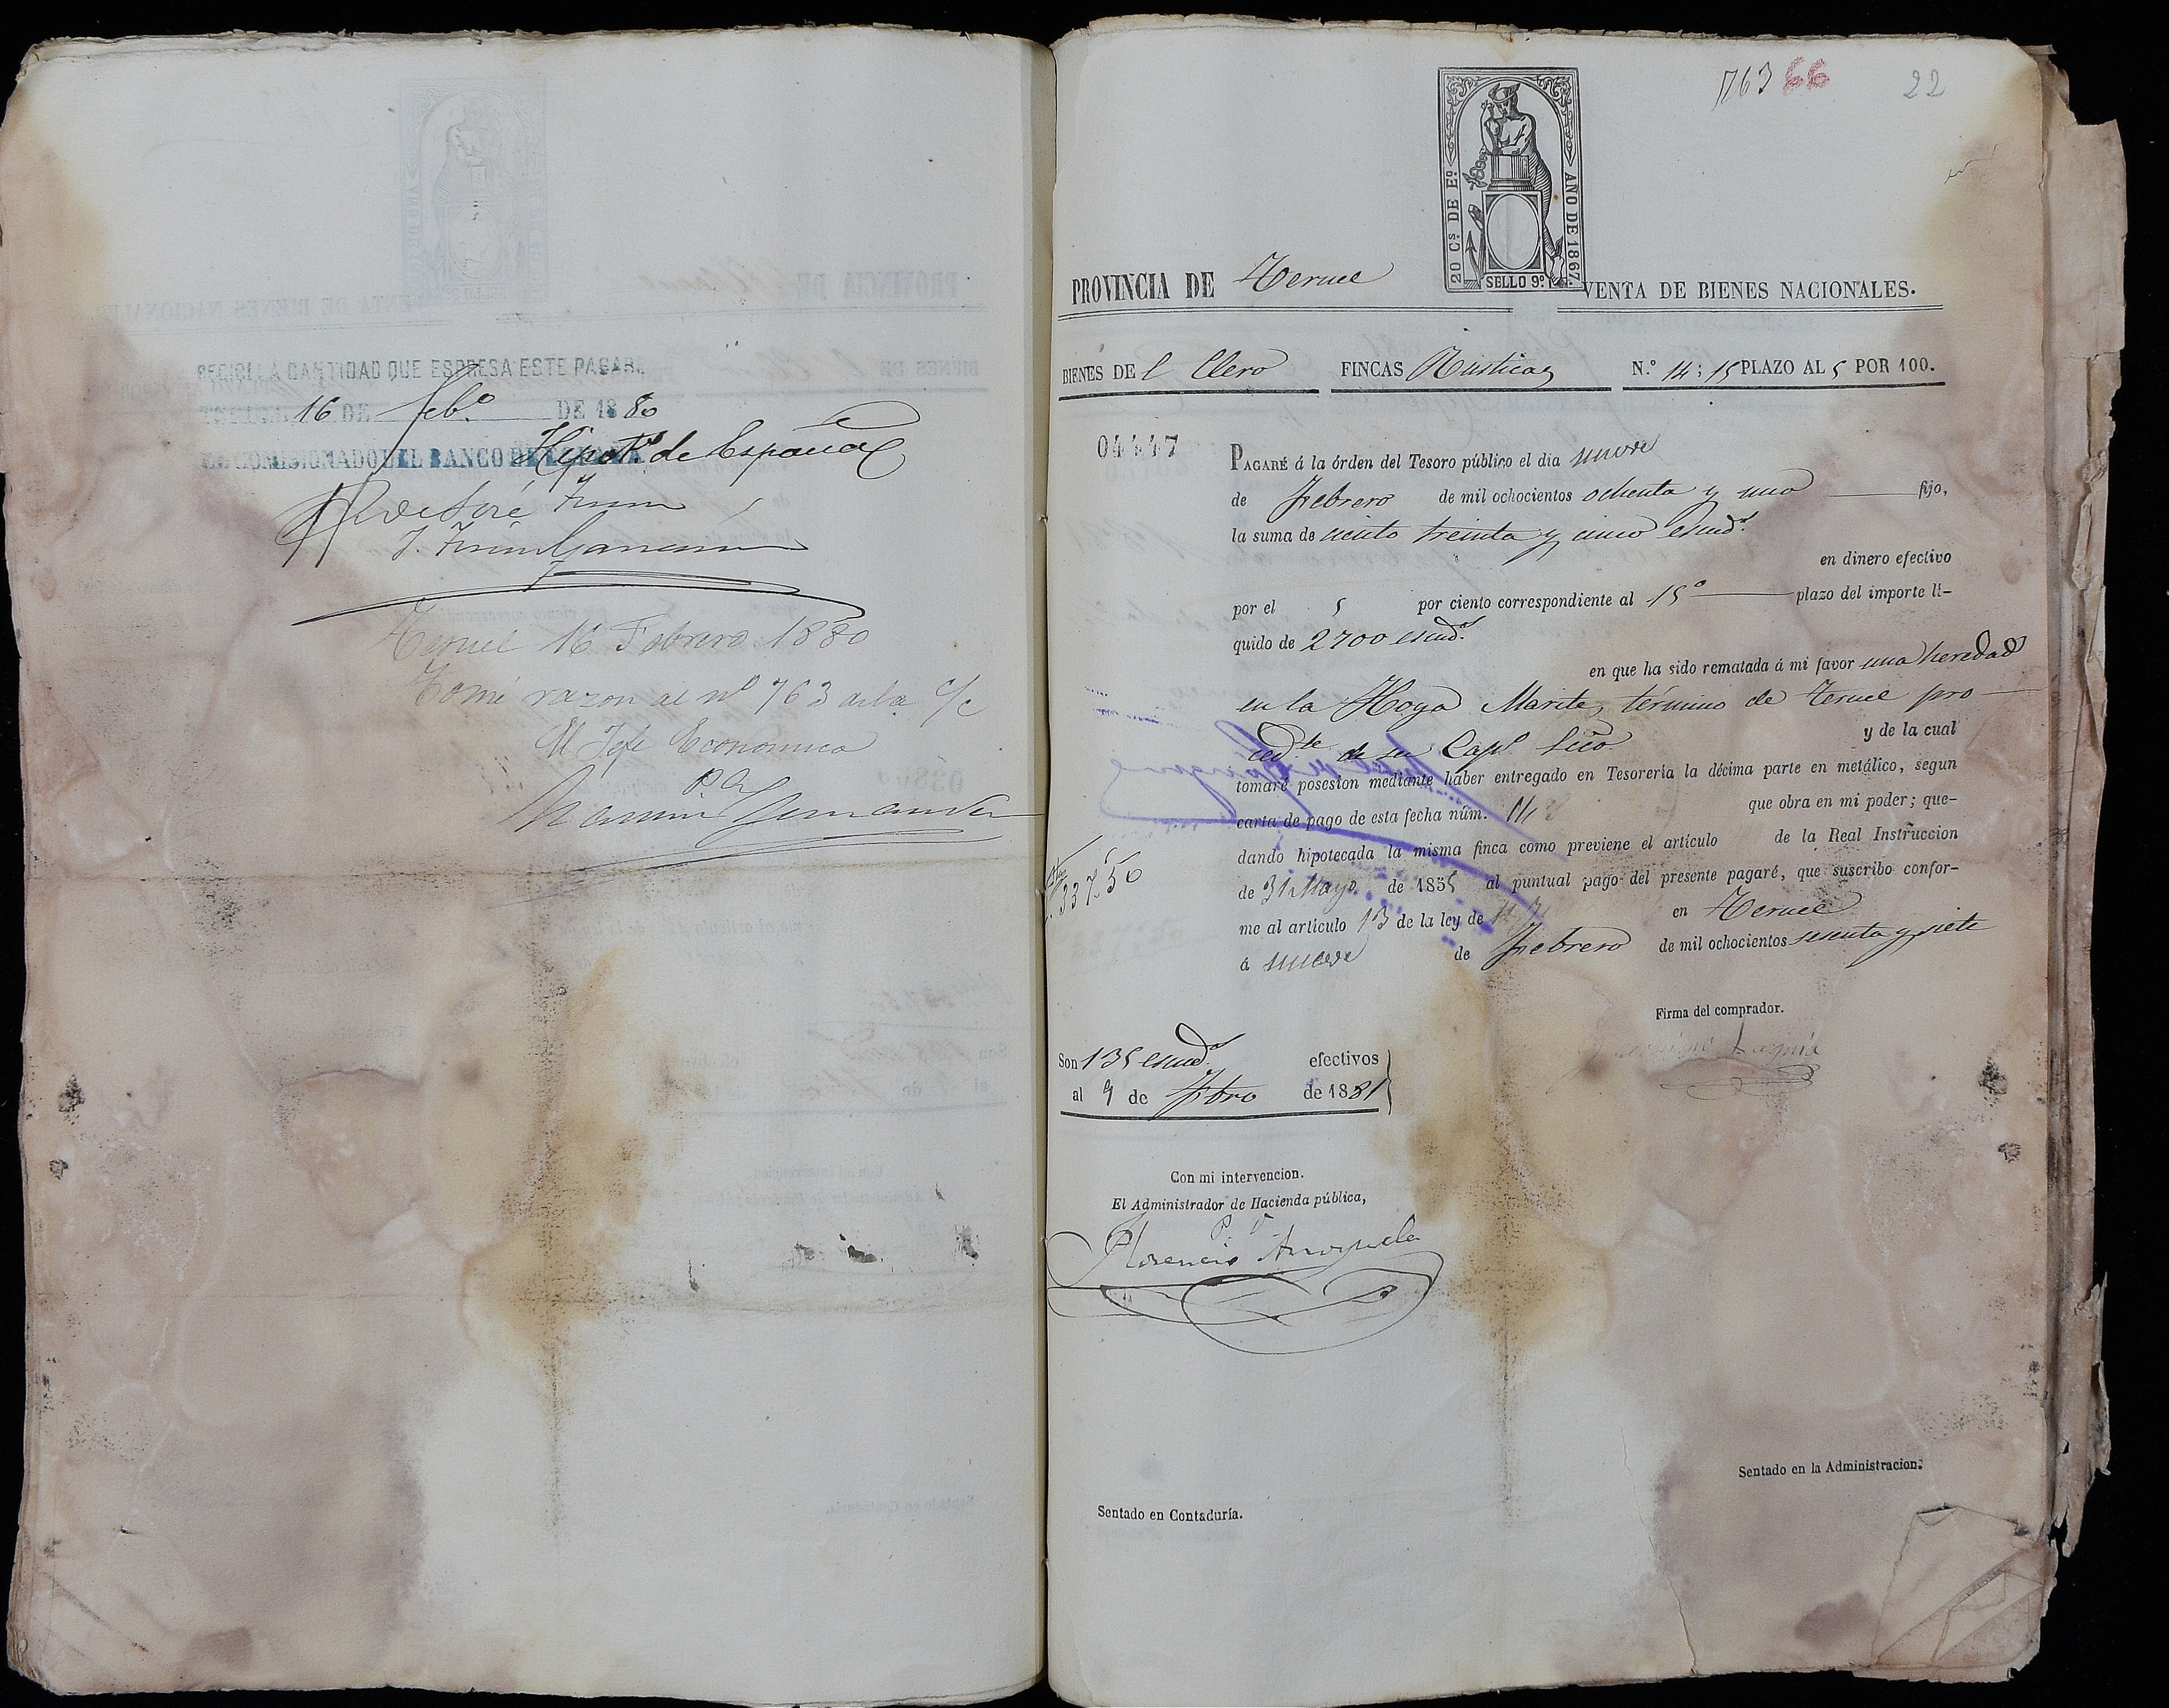 RECIBI LA CANTIDAD QUE ESPRESA ESTE PAGARÉ
16 DE Febº DE 1880
EL COMISIONADO DEL BANCO DE ESPAÑA Hipotº de España
Teruel 16 Febrero 1880
Tomé razon al nº 763 de la c/c
El Jefe Economico
P.A.
763 66 22
20 Cs DE Eº
AÑO DE 1867
SELLO 9º
PROVINCIA DE Teruel
VENTA DE BIENES NACIONALES.
BIENES DE l Clero FINCAS Rusticas N.º 14; 15 PLAZO AL 5 POR 100.
04447
PAGARÉ á la órden del Tesoro público el dia nueve
de Febrero de mil ochocientos ochenta y uno fijo,
la suma de ciento treinta y cinco escudˢ
en dinero efectivo
por el 5 por ciento correspondiente al 15º plazo del importe lí-
quido de 2700 escudˢ
en que ha sido rematada á mi favor una heredad
en la Hoya Marite, término de Teruel pro
cedᵗᵉ de su Capˡ Ecco y de la cual
tomaré posesion mediante haber entregado en Tesorería la décima parte en metálico, segun
carta de pago de esta fecha núm. que obra en mi poder; que-
dando hipotecada la misma finca como previene el artículo de la Real Instruccion
de 31 Mayo de 1855 al puntual pago del presente pagaré, que suscribo confor-
me al artículo 13 de la ley de en Teruel
a nueve de Febrero de mil ochocientos sesenta y siete
337,50
Firma del comprador.
Son 135 escudˢ efectivos
al 9 de Fbro de 1881
Con mi intervencion.
El Administrador de Hacienda pública,
P. Y.
Florencio Arroyuela
Sentado en la Administracion.
Sentado en Contaduría.